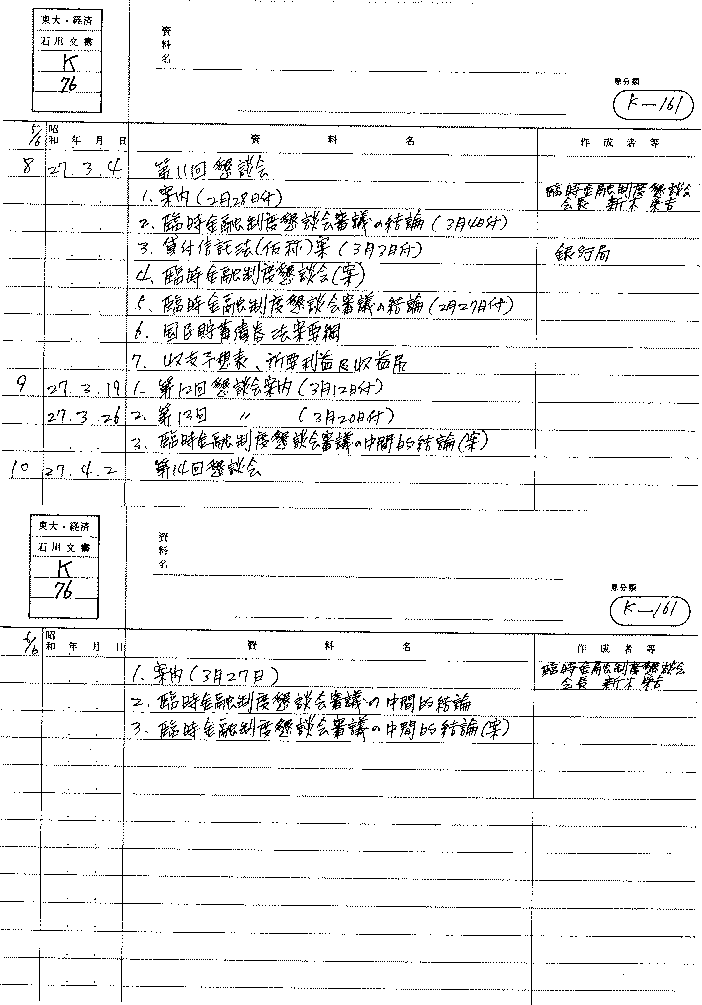 東大・経済
石川文書
K
76
資料名
原分類
K-161
5/6 昭和 年 月 日 資料名 作成者等
8 27.3.4 第11回懇談会
1. 案内(2月28日付) 臨時金融制度懇談会 会長 新木栄吉
2. 臨時金融制度懇談会審議の結論(3月4日付)
3. 貸付信託法(仮称)案(3月3日付) 銀行局
4. 臨時金融制度懇談会(案)
5. 臨時金融制度懇談会審議の結論(2月27日付)
6. 国民貯蓄債券法案要綱
7. 収支予想表、所要利益及収益居
9 27.3.19 1. 第12回懇談会案内(3月12日付)
27.3.26 2. 第13回 〃 (3月20日付)
3. 臨時金融制度懇談会審議の中間的結論(案)
10 27.4.2 第14回懇談会
東大・経済
石川文書
K
76
資料名
原分類
K-161
5/6 昭和 年 月 日 資料名 作成者等
1. 案内(3月27日) 臨時金融制度懇談会 会長 新木栄吉
2. 臨時金融制度懇談会審議の中間的結論
3. 臨時金融制度懇談会審議の中間的結論(案)